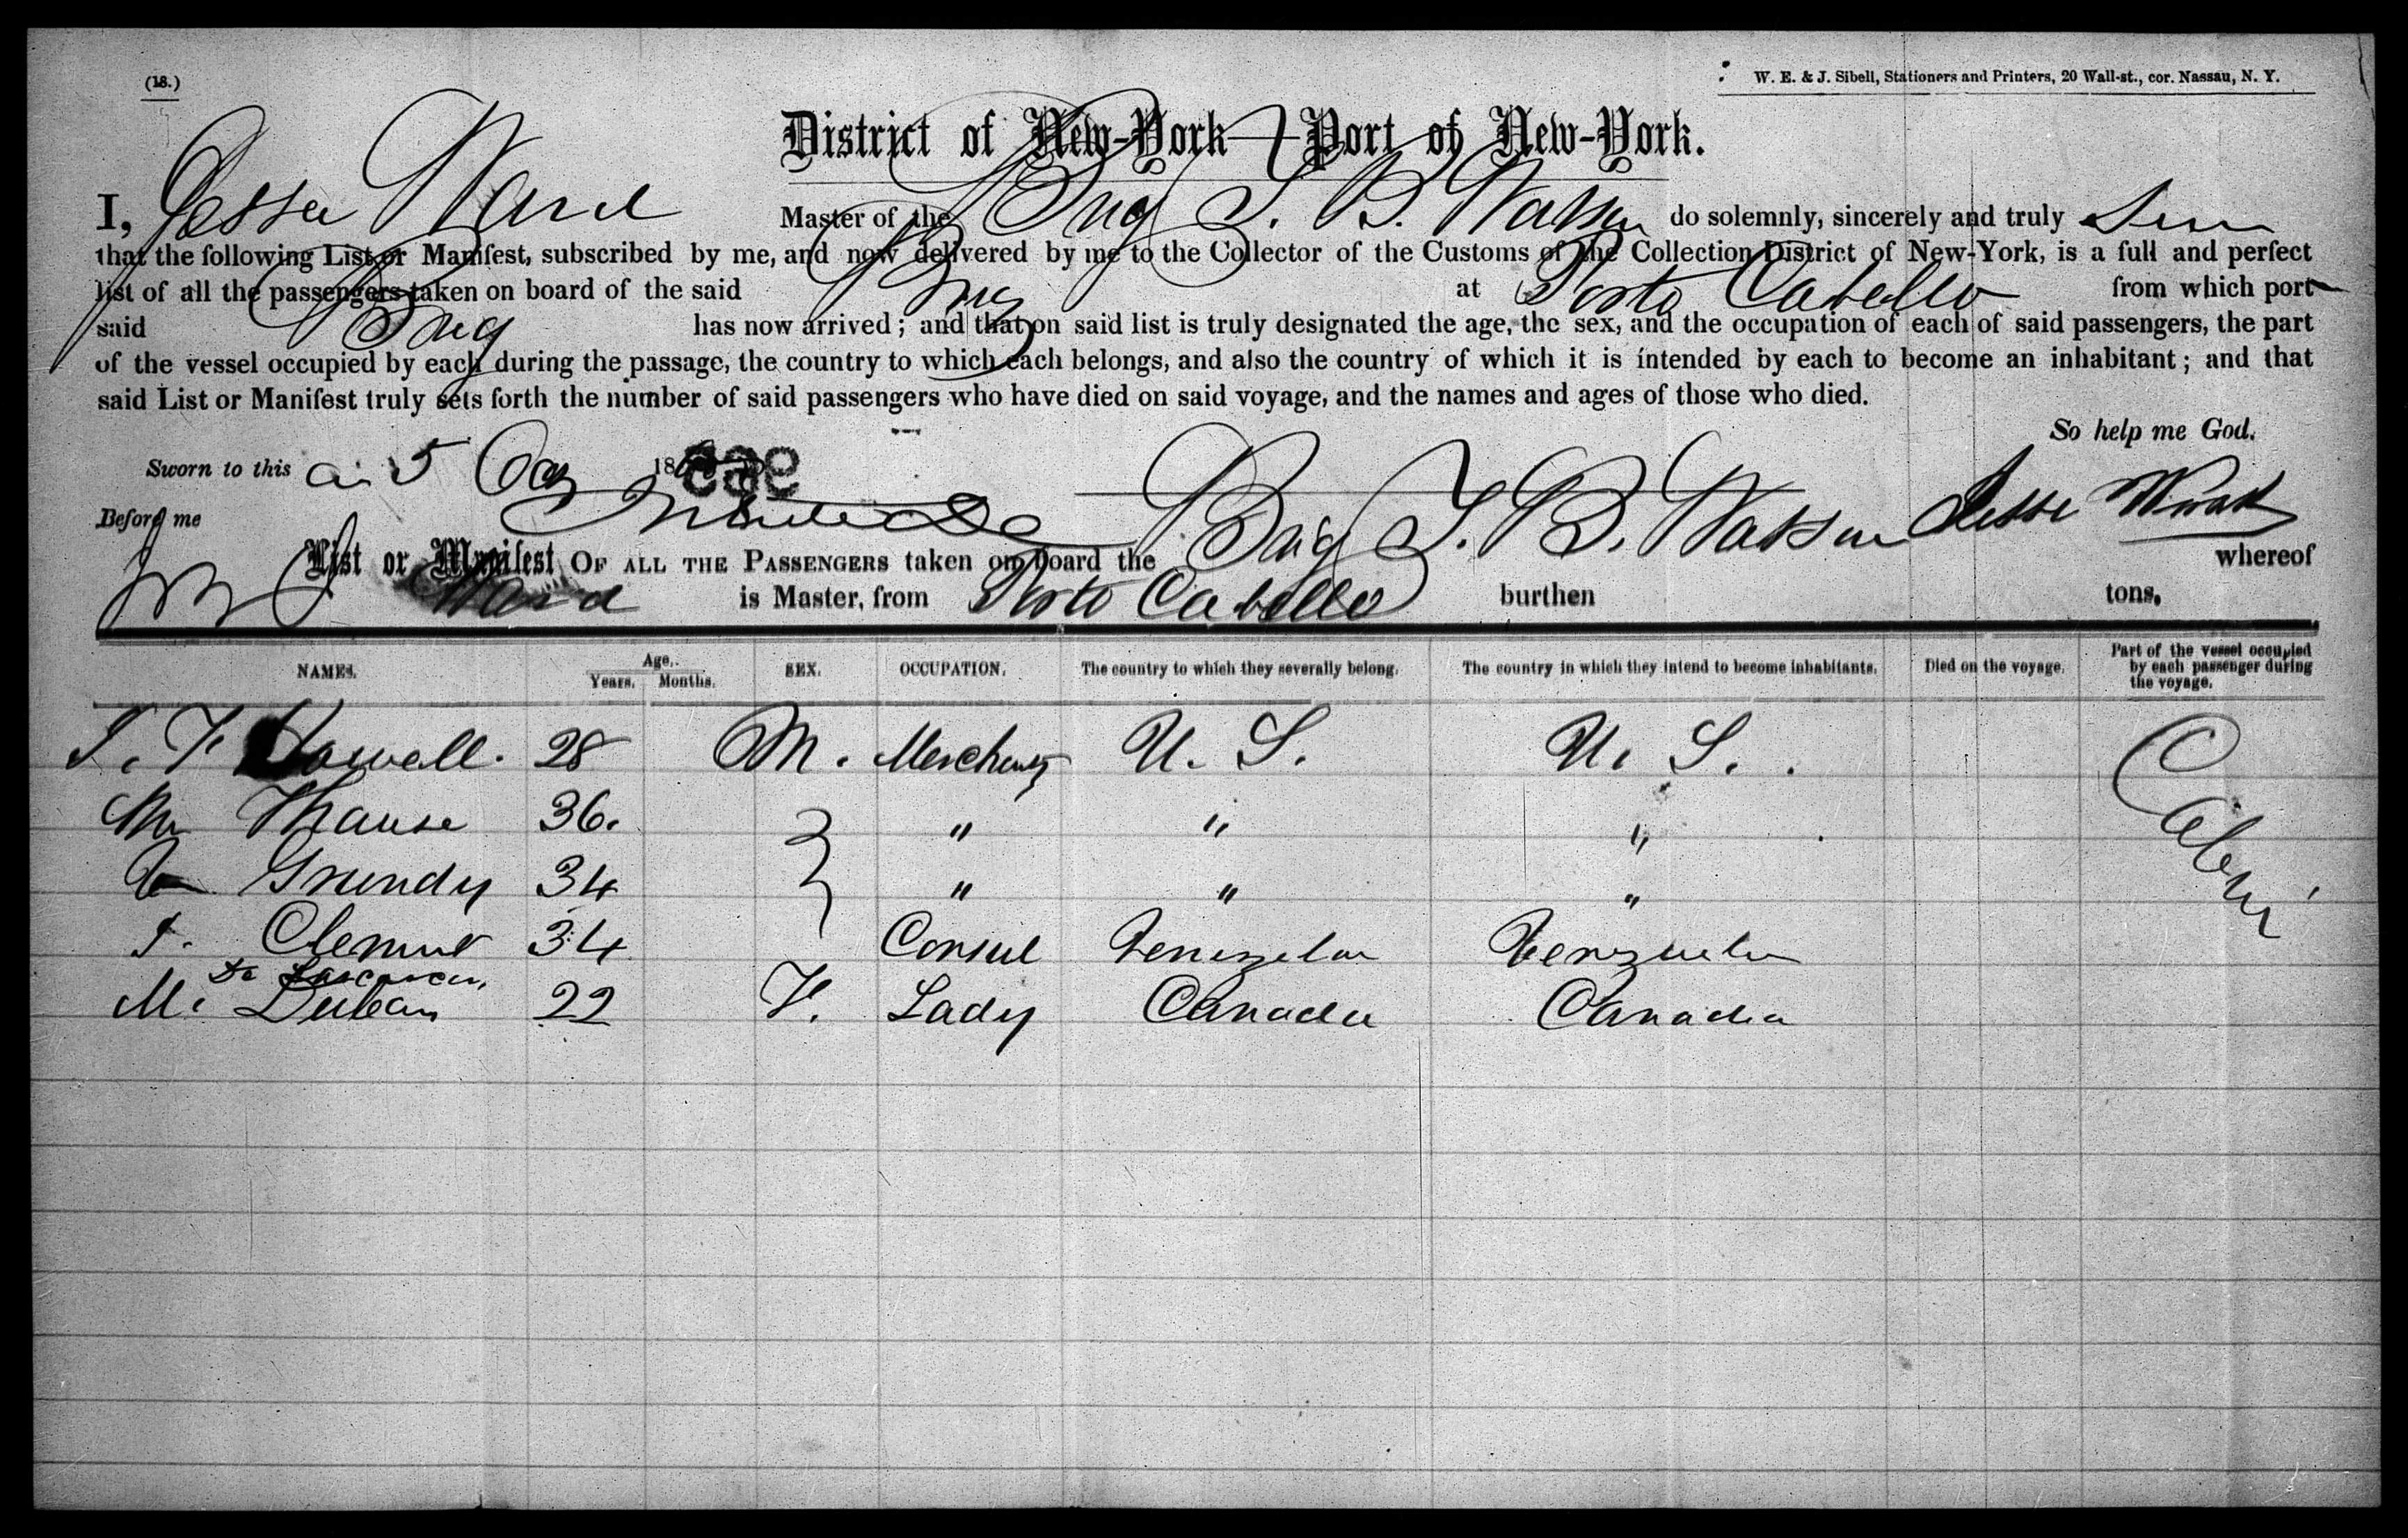 (18.)
W. E. & J. Sibell, Stationers and Printers, 20 Wall-st., cor. Nassau, N. Y.
District of New-York—Port of New-York.
I, Jesse Ward Master of the Brig do solemnly, sincerely and truly
that the following List or Manifest, subscribed by me, and now delivered by me to the Collector of the Customs of the Collection District of New-York, is a full and perfect
list of all the passengers taken on board of the said Brig at Porto Cabello from which port
said Brig has now arrived; and that on said list is truly designated the age, the sex, and the occupation of each of said passengers, the part
of the vessel occupied by each during the passage, the country to which each belongs, and also the country of which it is intended by each to become an inhabitant; and that
said List or Manifest truly sets forth the number of said passengers who have died on said voyage, and the names and ages of those who died.
So help me God.
Sworn to this 5 186
Before me
List or Manifest OF ALL THE PASSENGERS taken on board the Brig whereof
Ward is Master, from Porto Cabello burthen tons.
NAMES. Age. Years. Months. SEX. OCCUPATION. The country to which they severally belong. The country in which they intend to become inhabitants. Died on the voyage. Part of the vessel occupied by each passenger during the voyage.
28 M. Merchant U. S. U. S. Cabin
36. " " "
Grundy 34 " " "
34 Consul Venezuela Venezuela
M. 22 F. Lady Canada Canada